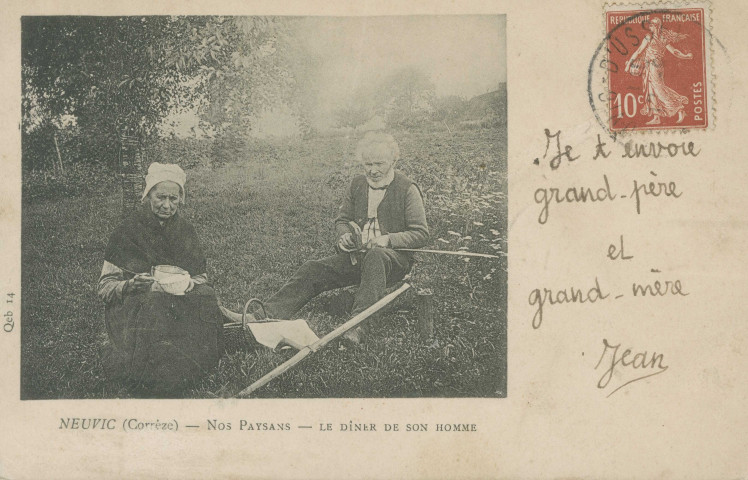 RÉPUBLIQUE FRANÇAISE
10c
POSTES
Je t'envoie
grand-père
et
grand-mère
Jean
Qcb 14
NEUVIC (Corrèze) — NOS PAYSANS — LE DÎNER DE SON HOMME